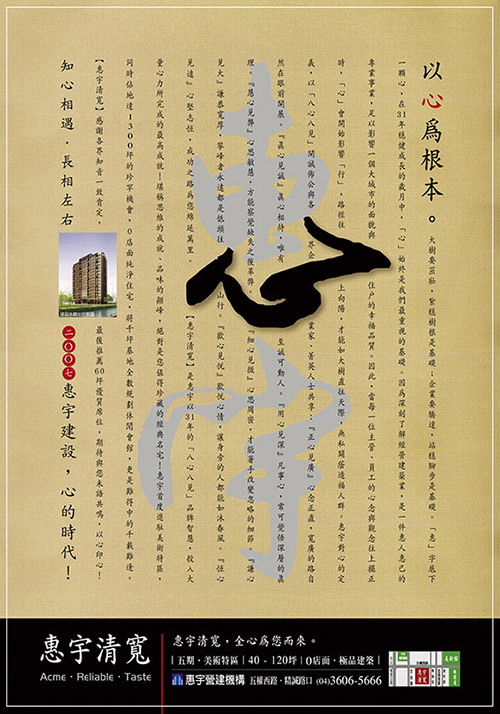 以心為根本。
大樹要茁壯，紮穩樹根是基礎；企業要騰達，站穩腳步是基礎。「惠」字底下
一顆心，在31年穩健成長的歲月中，「心」始終是我們最重視的基礎。因為深刻了解經營建築業，是一件惠人惠己的
專業事業，足以影響一個大城市的面貌與住戶的幸福品質。因此，當每一位主管、員工的心念與觀念往上擺正
時，「心」會開始影響「行」，路徑往上向陽，才能如大樹直往天際，無私開蔭造福人群。惠宇對心的定
義，以「八心八見」開誠佈公與各界企業家、菁英人士共享：『正心見廣』心念正直，寬廣的路自
然在眼前開展。『真心見誠』真心相待，唯有至誠可動人。『用心見深』凡事心，常可覺悟深層的真
理。『慧心見弊』心思敏慧，方能察覺缺失之後革弊。『細心見微』心思周密，才能著手改變忽略的細節。『謙心
見大』謙恭寬厚，攀峰者永遠都是低頭往山行。『歡心見悅』歡悅心情，讓身旁的人都能如沐春風。『恆心
見遠』心堅志恆，成功之路為您綿延萬里。【惠宇清寬】是惠宇以31年的「八心八見」品牌智慧，投入大
量心力所完成的最高成就！堪稱思維的成就、品味的巔峰，絕對是您值得珍藏的經典名宅！惠宇首度進駐美術特區，
同時佔地達1300坪的珍罕機會，0店面純淨住宅，將千坪基地全數規劃休閒會館，更是難得中的千載難逢。
【惠宇清寬】感謝各界知音一致肯定，最後推薦60坪優質席位，期待與您未語共鳴，以心印心！
知心相遇．長相左右
二〇〇七惠宇建設，心的時代！
惠
惠宇清寬
Acme．Reliable．Taste
惠宇清寬，全心為您而來。
| 五期．美術特區 | 40 - 120坪 | 0店面．極品建築 |
惠宇營建機構 五權西路．精誠路口 (04)3606-5666